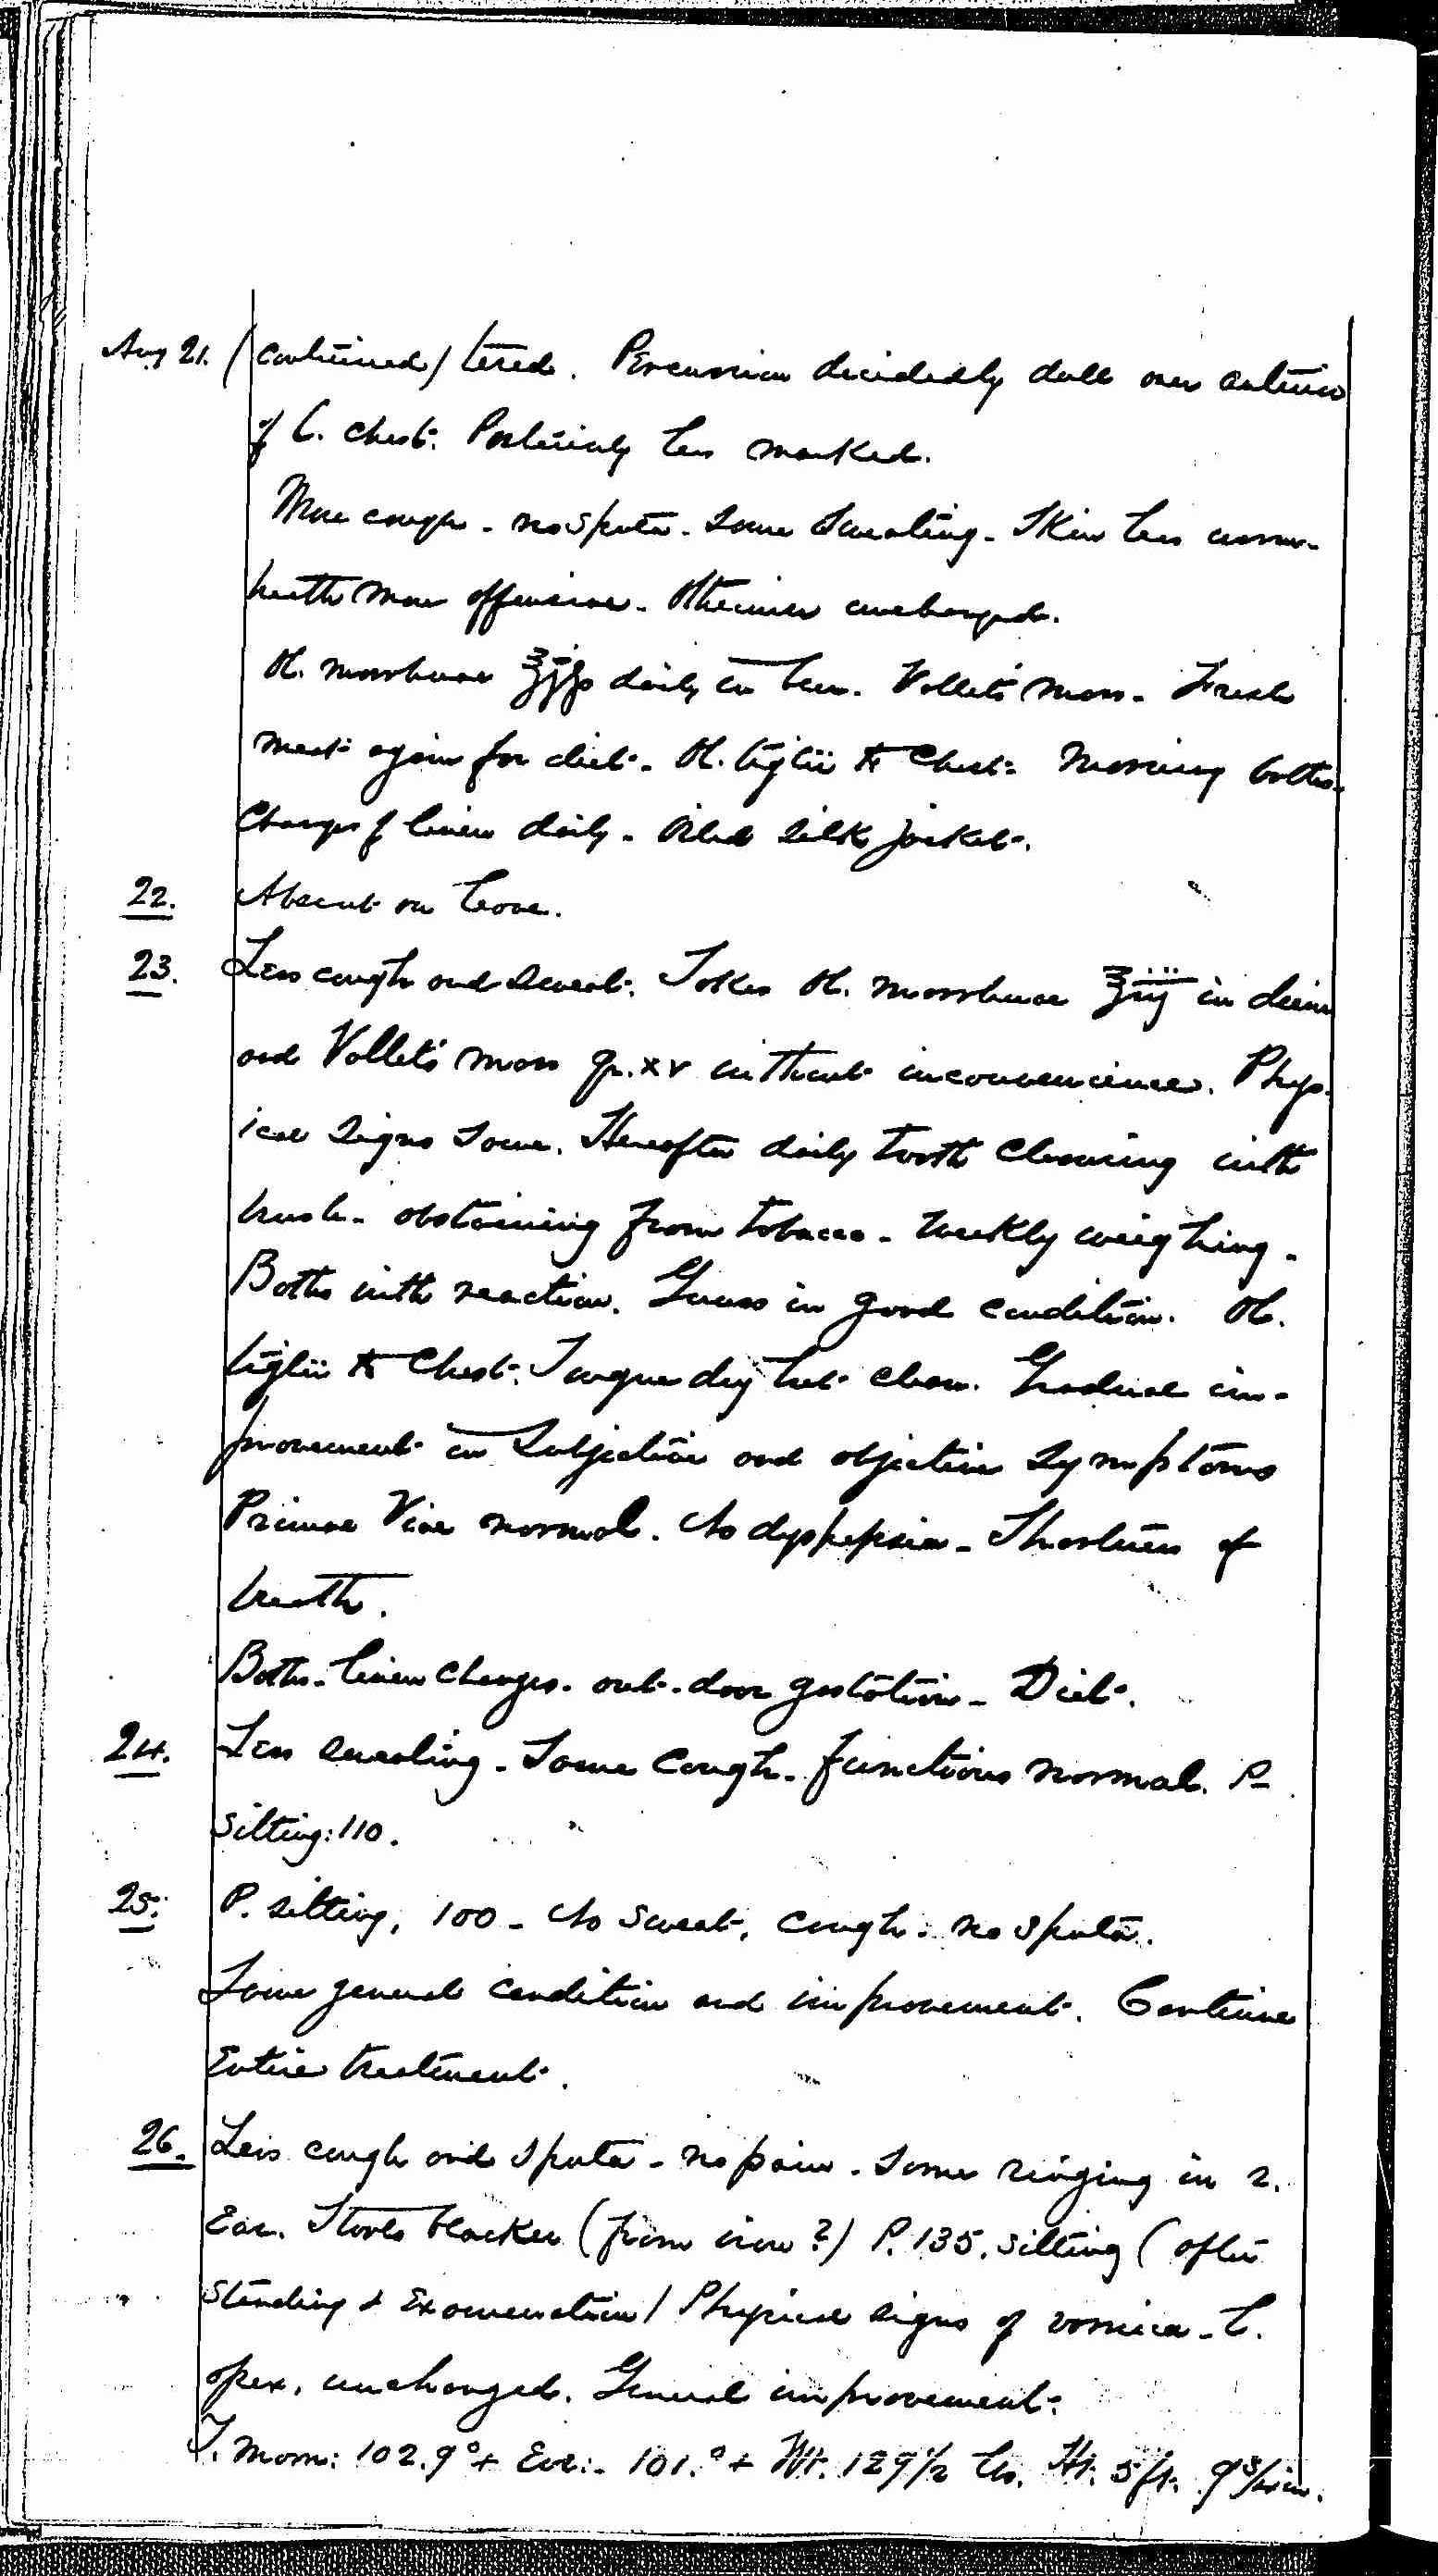 Aug 21. (continued) tered. Percussion decidedly dull over anterior
of l. chest. Posteriorly less marked.
More cough - no sputa - Some sweating - Skin less warm -
breath more offensive - Otherwise unchanged.
Ol. morrhuae ℥jss daily in beer. Vallet's mass - Fresh
meat again for diet - Ol. tiglii to chest. Morning baths -
Changes of linen daily - Oiled silk jacket.
22. Absent on leave.
23. Less cough and sweat. Takes Ol. morrhuae ℥iij in
and Vallet's mass gr. xv without inconvenience. Phys-
ical signs same. Hereafter daily tooth cleansing with
brush - abstaining from tobacco - weekly weighing -
Baths with reaction. Gums in good condition. Ol.
tiglii to chest. Tongue dry but clean. Gradual im-
provement in subjective and objective symptoms
Primae Viae normal. No dyspepsia - Shortness of
breath.
Baths - linen changes - out-door gestation - Diet.
24. Less sweating - Some cough - functions normal. P -
sitting: 110.
25. P. sitting, 100 - No sweat, cough: no sputa.
Same general condition and improvement. Continue
Entire treatment.
26. Less cough and sputa - no pain - Some ringing in r.
Ear. Stools blacker (from iron?) P. 135, sitting (after
standing & Examination) Physical signs of vomica - l.
apex, unchanged. General improvement.
T. Morn: 102.9°+ Eve: - 101.°+ Wt. 129 1/2 lbs. Ht. 5 ft. 9 3/4 in.